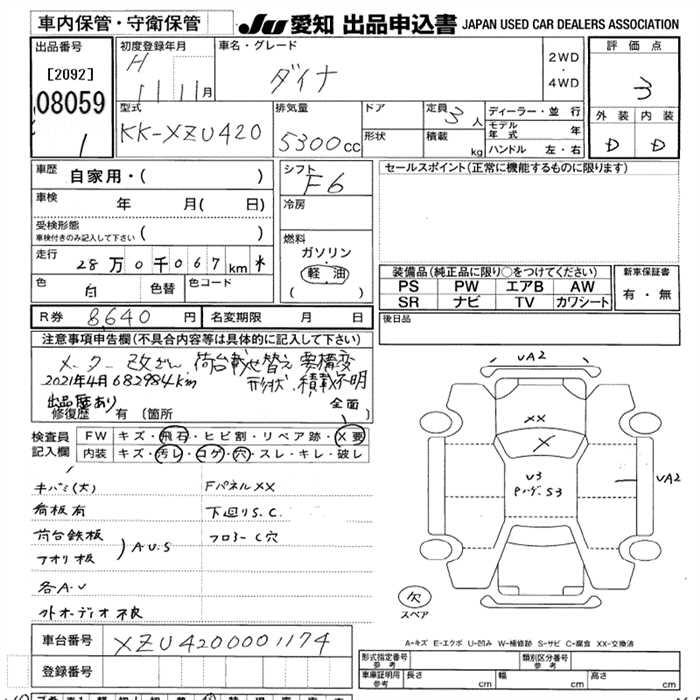 車内保管・守衛保管
JU 愛知 出品申込書 JAPAN USED CAR DEALERS ASSOCIATION
出品番号
[2092]
08059
1
初度登録年月
H 11 11月
車名・グレード
ダイナ
2WD
・
4WD
評価点
3
外装 内装
D D
型式
KK-XZU420
排気量
5300cc
ドア
形状
定員 3人
積載 kg
ディーラー・並行
モデル年式 年
ハンドル 左・右
車歴
自家用・( )
車検 年 月( 日)
受検形態
車検付きのみ記入して下さい ( )
走行
28万0千067km *
色 白 色替 色コード
シフト
F6
冷房
燃料
ガソリン
軽油
( )
R券 8640円 名変期限 月 日
セールスポイント(正常に機能するものに限ります)
装備品(純正品に限り○をつけてください)
PS PW エアB AW
SR ナビ TV カワシート
新車保証書
有・無
後日品
注意事項申告欄(不具合内容等は具体的に記入して下さい)
メーター改ざん 荷台載せ替え 要構変
2021年4月 682984km 形状、積載不明
出品歴あり
修復歴 有 (箇所
全面
検査員
記入欄
FW キズ・飛石・ヒビ割・リペア跡・X要
内装 キズ・汚レ・コゲ・穴・スレ・キレ・破レ
キバミ(大)
看板有
荷台鉄板
フオリ板
) A.U.S
各A.U
外オーディオ不良
Fパネル XX
下回りS.C.
フロアーC穴
UA2
XX
X
U3
S3
UA2
欠
スペア
A-キズ E-エクボ U-凹み W-補修跡 S-サビ C-腐食 XX-交換済
車台番号 XZU4200001174
登録番号
形式指定番号
参考
類別区分番号
参考
車庫証明用
参考
長さ cm 幅 cm 高さ cm